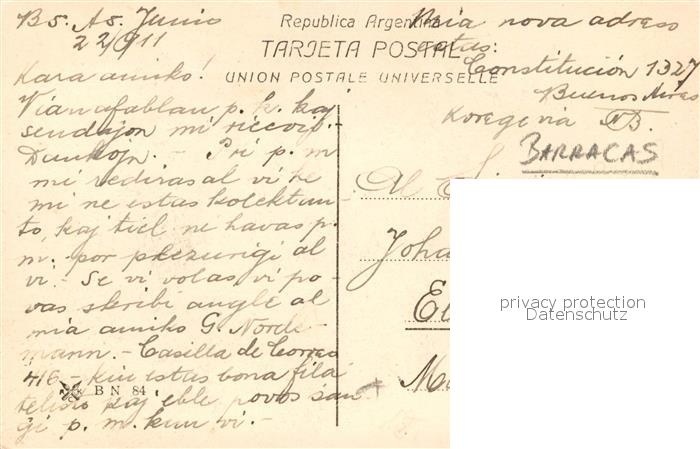 Bs. As. Junio
22/911
Kara amiko!
Vian afablan p. k. kaj
sendajon mi ricevis.-
Dankojn. - Pri p. m.
mi rediras al vi ke
mi ne estas kolektan-
to, kaj tiel ne havas p.
m. por plezurigi al
vi. - Se vi volas, vi po-
vas skribi angle al
mia amiko G. Norde-
mann. - Casilla de Correo
416 - kiu estas bona fila-
telisto kaj eble povos ŝan-
gi p. m. kun vi. -
Republica Argentina
TARJETA POSTAL
UNION POSTALE UNIVERSELLE
B N 84
Mia nova adreso
estas:
Constitución 1327
Buenos Aires
Korege via
BARRACAS
Al
Joha
privacy protection
Datenschutz